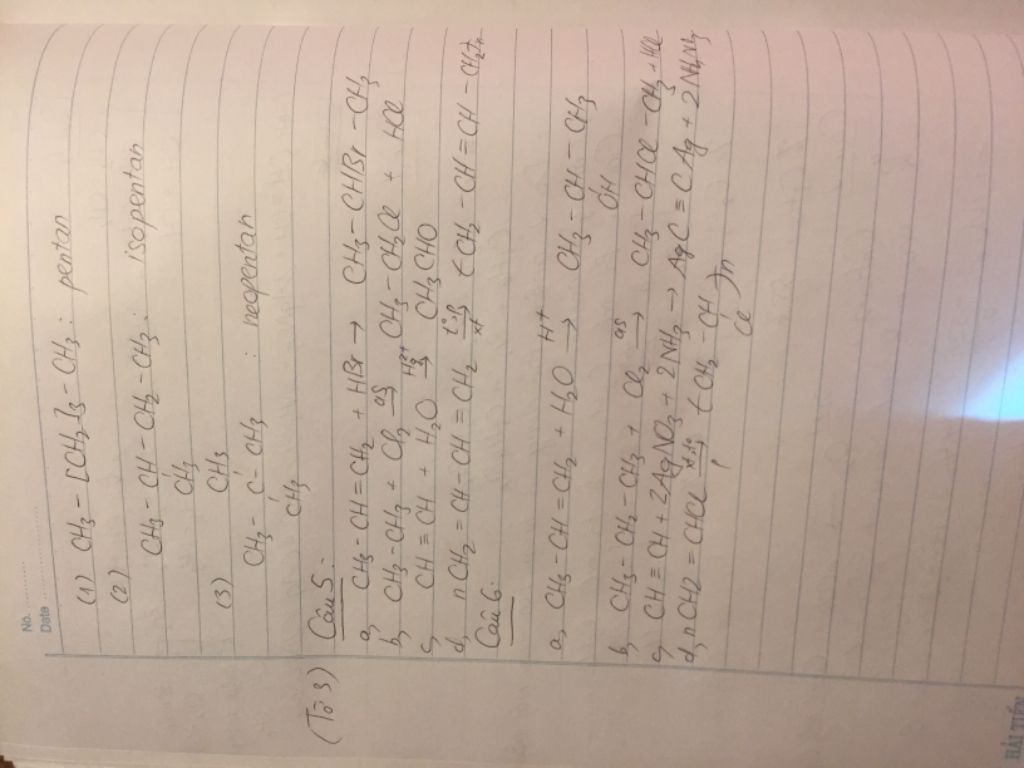 No. ...........
Date ......................
(1) CH3 - [CH2]3 - CH3 : pentan
(2)
CH3 - CH - CH2 - CH3 : isopentan
CH3
(3) CH3
CH3 - C - CH3 : neopentan
CH3
(Tờ 3) Câu 5:
a, CH3 - CH = CH2 + HBr → CH3 - CHBr - CH3
b, CH3 - CH3 + Cl2 as→ CH3 - CH2Cl + HCl
c, CH ≡ CH + H2O Hg2+→ CH3CHO
d, nCH2 = CH - CH = CH2 t°, p, xt→ (-CH2 - CH = CH - CH2-)n
Câu 6:
a, CH3 - CH = CH2 + H2O H+→ CH3 - CH - CH3
OH
b, CH3 - CH2 - CH3 + Cl2 as→ CH3 - CHCl - CH3 + HCl
c, CH ≡ CH + 2AgNO3 + 2NH3 → AgC ≡ CAg + 2NH4NO3
d, nCH2 = CHCl → (-CH2 - CH-)n
Cl
HẢI TIẾN